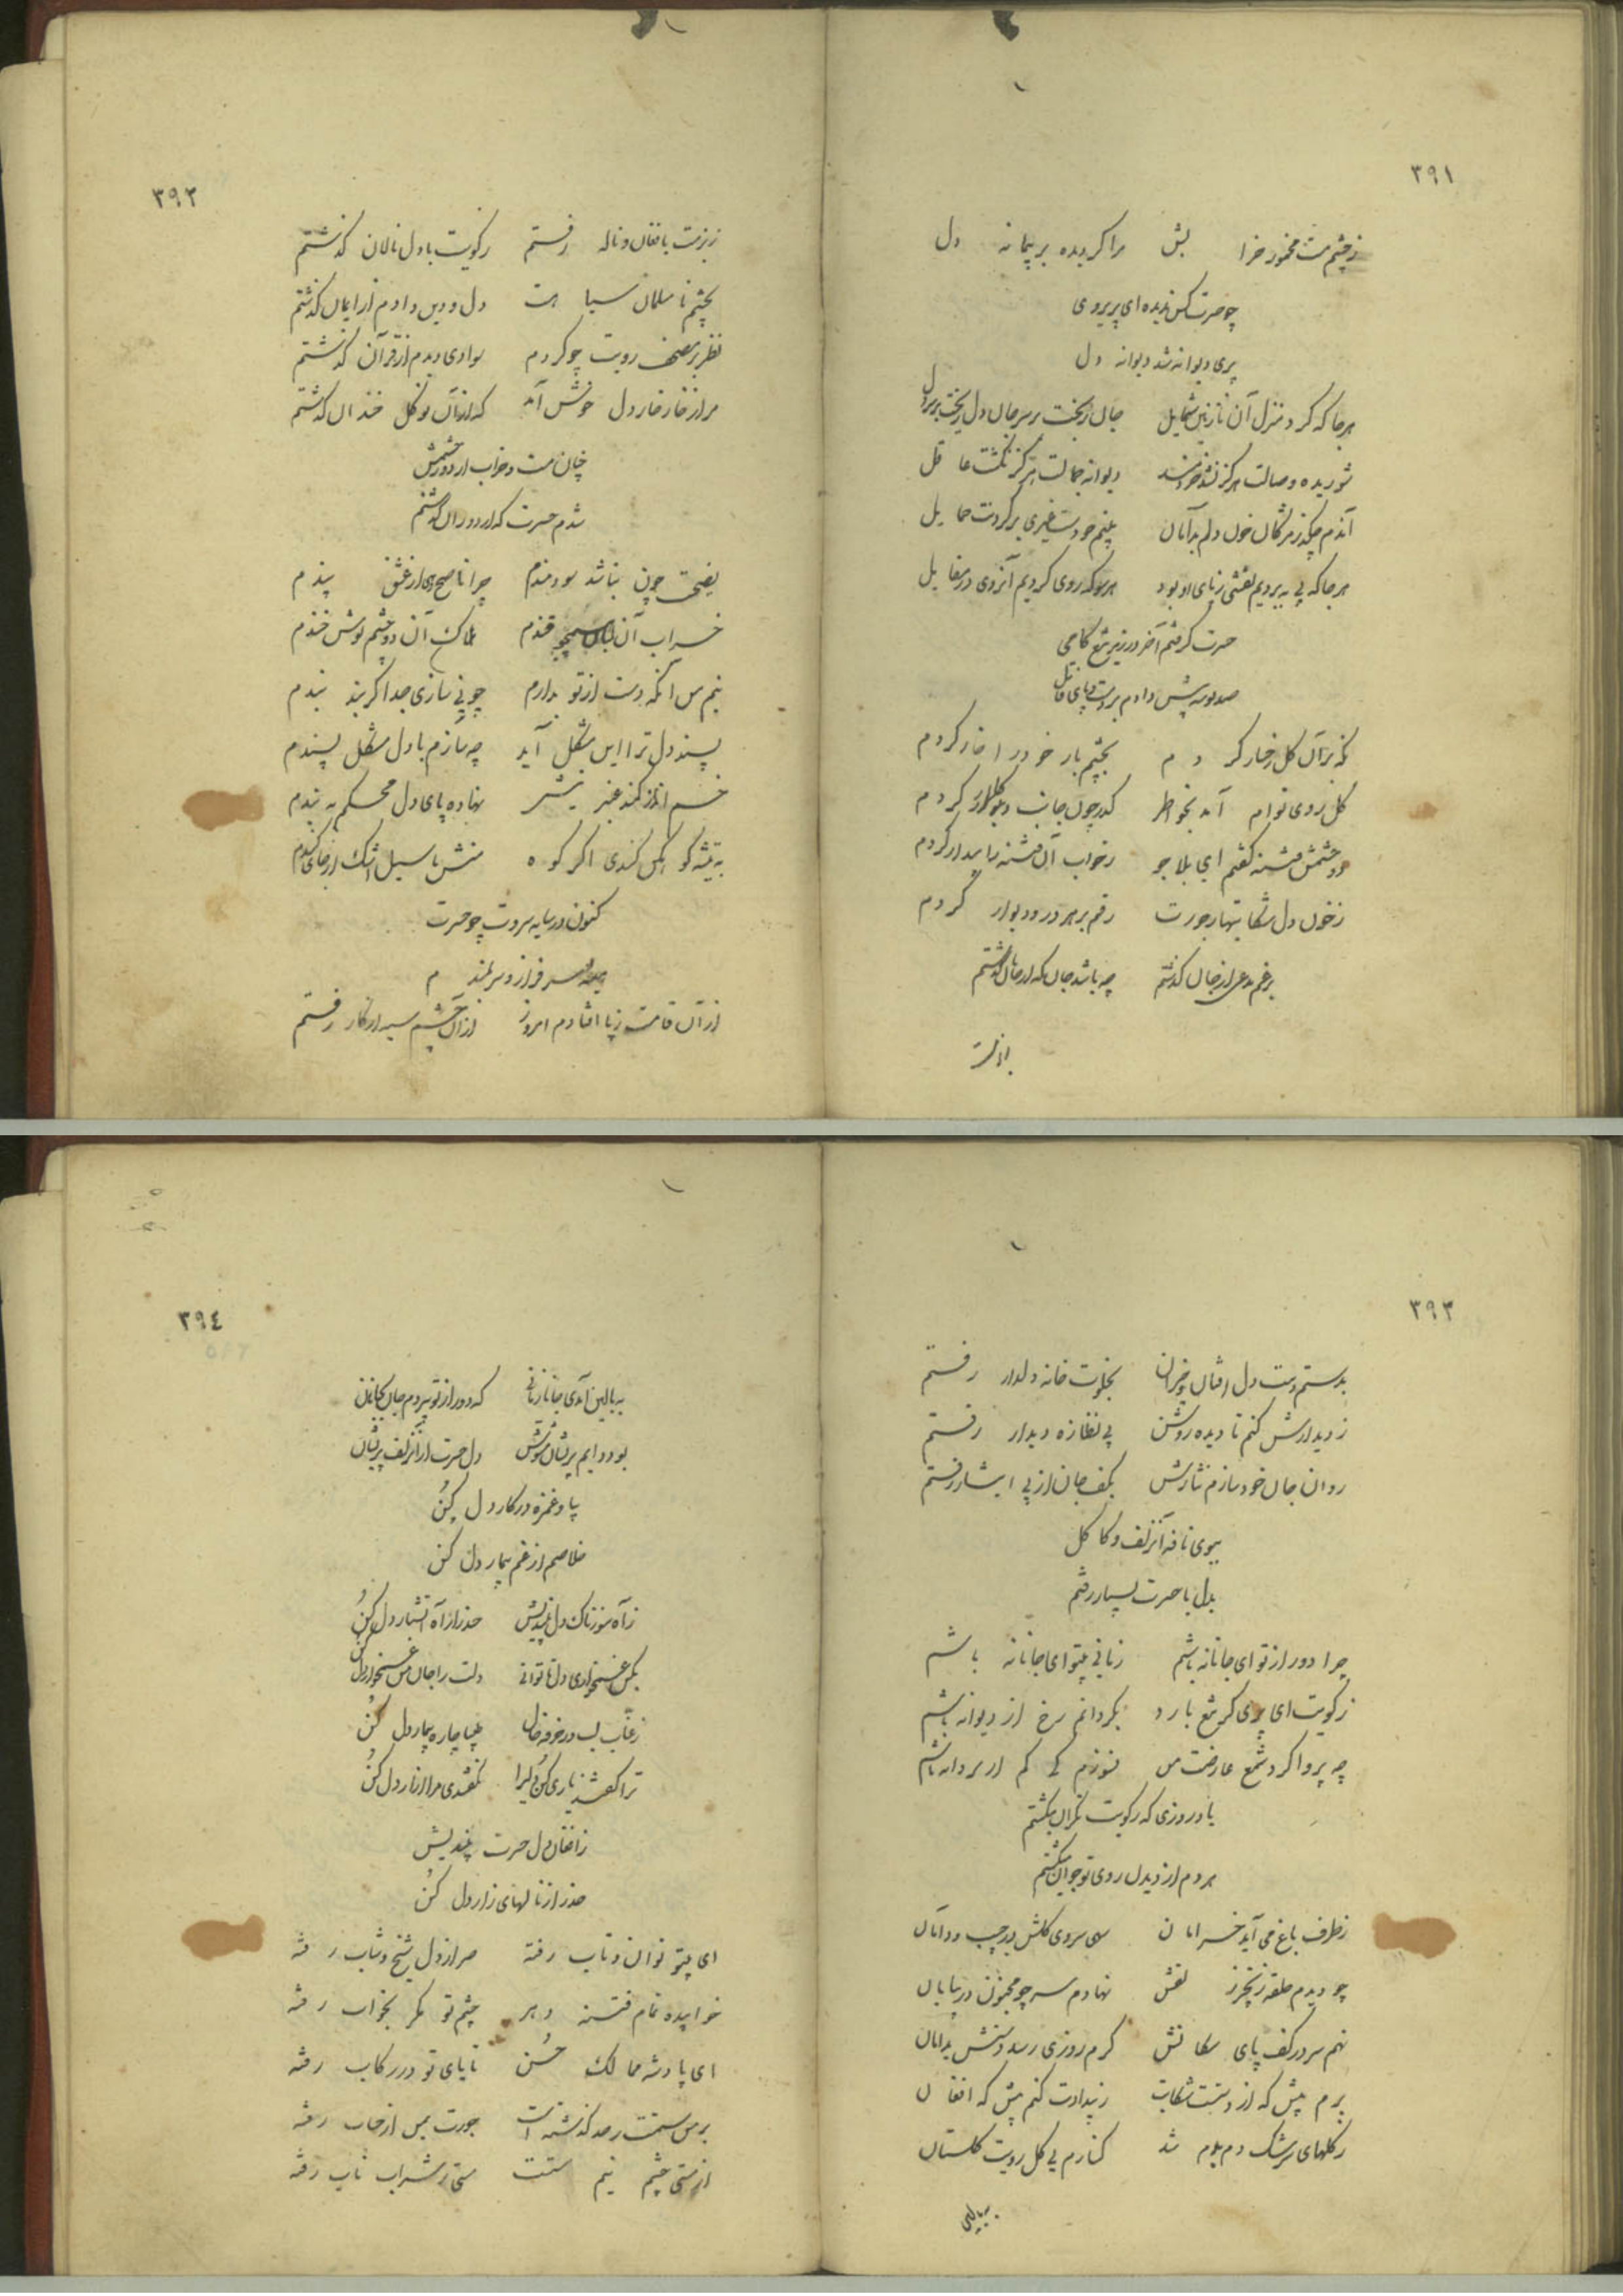 ۳۹۱
ز چشم مست مخمور خرا بش مرا گردیده پر پیمانه دل
چو حسرت کس ندیده ای پریروی
پری دیوانه شد دیوانه دل
هرجا که کرد منزل آن نازنین شمایل جان ریخت بر سر جان دل ریخت بر سر دل
شوریده وصالت هرگز نشد خردمند دیوانه جمالت هرگز نگشت عاقل
آندم چکد ز مژگان خون دلم بدامان بینم چو دست غیری بر گردنت حمایل
هرجا که پی ببردیم نقشی ز پای او بود هر سو که روی کردیم آنروی در مقابل
حسرت گرفتم آخر در زیر تیغ کامی
صد بوسه پیش دادم بر دست و پای قاتل
نگه بر آن گل رخسار کردم بچشم یار خود را خار کردم
گل روی توام آمد بخاطر گذر چون جانب گلزار کردم
دو چشمش فتنه گفتم ای بلا جو ز خواب آن فتنه را بیدار کردم
ز خون دل شکایتهای جورت رقم بر هر در و دیوار کردم
برغم مدعی از جان گذشتم چه باشد جان که از جانان گذشتم
۳۹۲
ز بزمت با فغان و ناله رفتم ز کویت با دل نالان گذشتم
بچشم نامسلمان سیاهت دل و دین دادم از ایمان گذشتم
نظر بر مصحف رویت چو کردم سوادی دیدم از قرآن گذشتم
مرا از خار خار دل خوش آمد که از آن نو گل خندان گذشتم
چنان مست و خراب از دور چشمش
شدم حسرت که از دوران گذشتم
نصیحت چون نباشد سودمندم چرا ناصح دهی از عشق پندم
خراب آن لبان همچو قندم هلاک آن دو چشم نوش خندم
نیم من آنکه دست از تو بدارم چو نی سازی جدا گر بند بندم
پسند دل ترا این مشکل آید چه سازم با دل مشکل پسندم
خم اندر کمند عنبرینش نهاده پای دل محکم به بندم
به تیشه کوهکن کندی اگر کوه منش با سیل اشک از جای کندم
کنون در سایه سروت چو حسرت
سرفراز و سربلندم
از آن قامت ز پا افتادم امروز از آن چشم سیه از کار رفتم
۳۹۳
بدستم دست دل افتان و خیزان بخلوت خانه دلدار رفتم
ز دیدارش کنم تا دیده روشن پی نظاره دیدار رفتم
روان جان خود سازم نثارش بکف جان از پی ایثار رفتم
ببوی نافه آنزلف و کاکل
بدل با حسرت بسیار رفتم
چرا دور از تو ای جانانه باشم زمانی بیتو ای جانانه باشم
ز کویت ای پری گر تیغ بارد بگردانم رخ از دیوانه باشم
چه پروا گر ز شمع عارضت من نسوزم کی کم از پروانه باشم
یاد روزی که ز کویت نگران میگشتم
هر دم از دیدن روی تو جوان میگشتم
ز طرف باغ می آید خرامان سهی سروی گلش در جیب و دامان
چو دیدم حلقه زنجیر زلفش نهادم سر چو مجنون در بیابان
نهم سر در کف پای سگانش گرم روزی رسد دستش بدامان
برم پیش که از دستت شکایت ز بیدادت کنم پیش که افغان
ز گلهای سرشک دم بدم شد کنارم بی گل رویت گلستان
ببالین
۳۹۴
ببالین آمدی جانا زمانی که دور از تو سپردم جان بجانان
بود دایم پریشان و مشوش دل حسرت از آنزلف پریشان
بیا و غمزه در کار دل کن
خلاصم از غم بیمار دل کن
ز آه سوزناک دل بیندیش حذر از آه آتشبار دل کن
بکن غمخواری دل تا توانی دلت را جان من غمخوار دل کن
ز عناب لب و ز خرفه خال بیا چاره بیمار دل کن
ترا گفتند یاری کن دلیرا نگفتندی مرا آزار دل کن
ز افغان دل حسرت بیندیش
حذر از نالهای زار دل کن
ای بیتو توان و تاب رفته صبر از دل شیخ و شاب رفته
خوابیده تمام فتنه دهر چشم تو مگر بخواب رفته
ای پادشه ممالک حسن تا پای تو در رکاب رفته
بر من ستمت ز حد گذشته است جورت بمن از حساب رفته
از مستی چشم نیم مستت مستی ز شراب ناب رفته